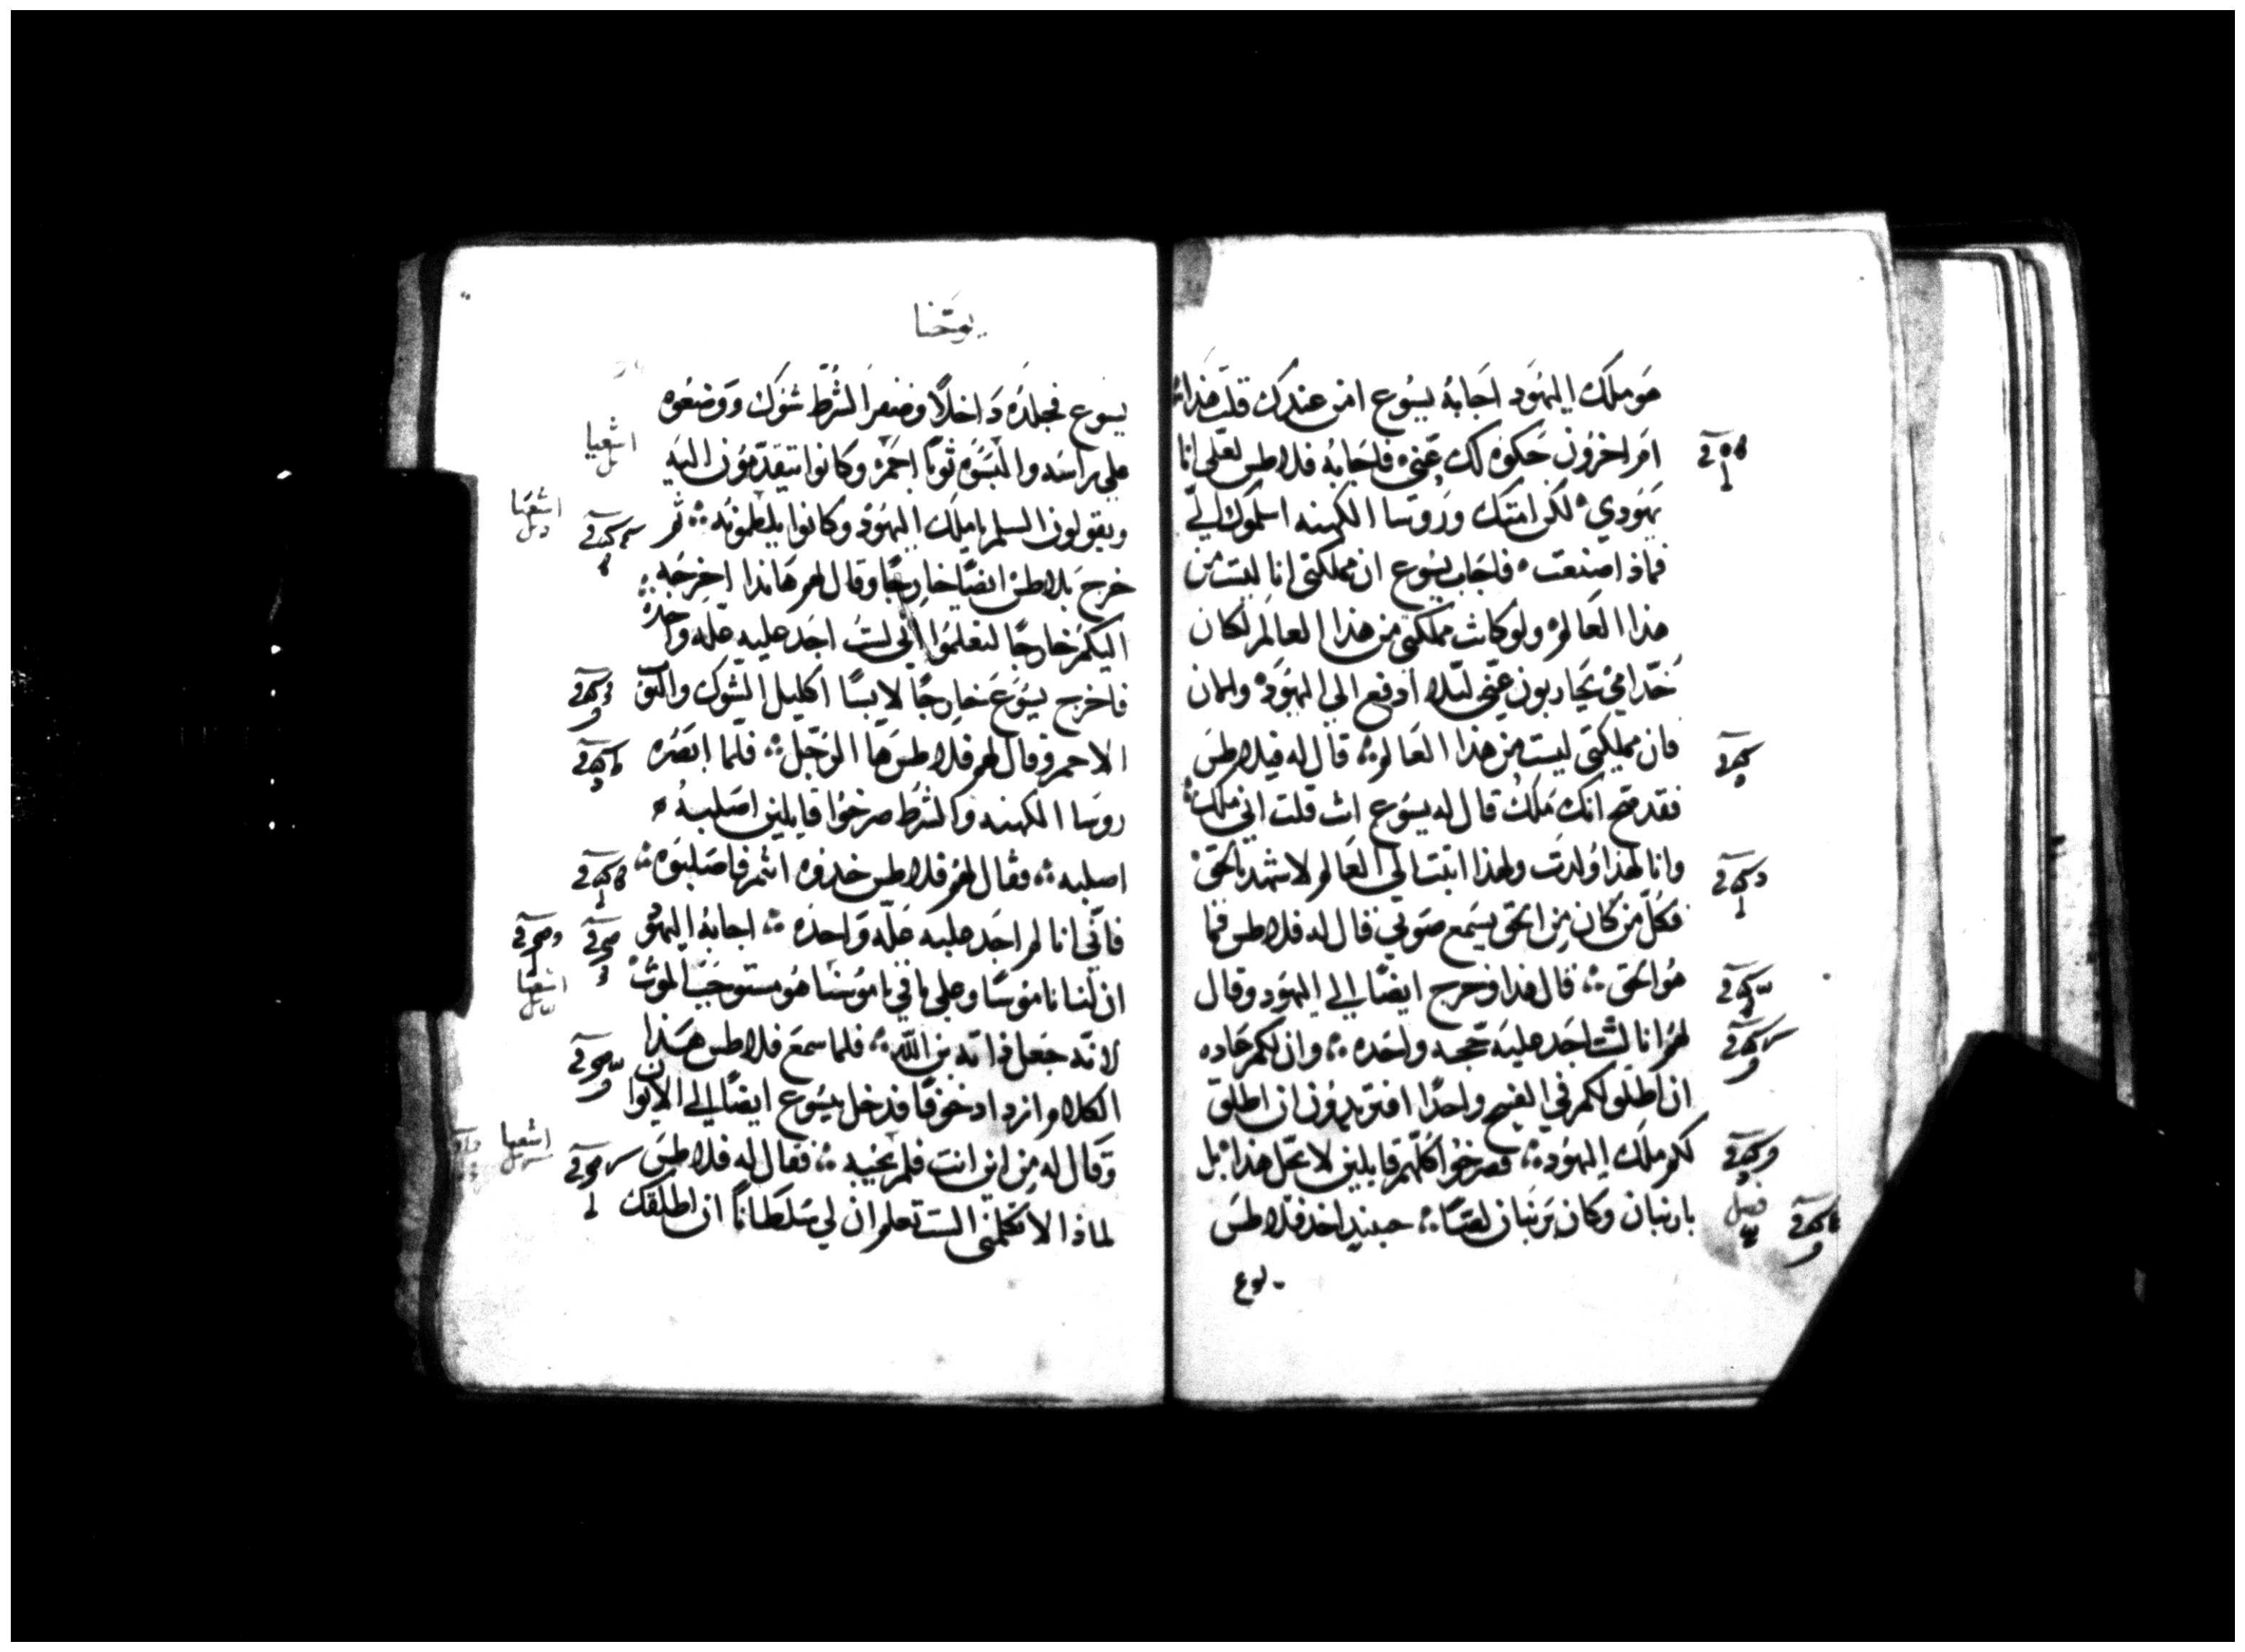 هو ملك اليهود اجابه يسوع امن عندك قلت هذا
ام اخرون حكوه لك عني فاجابه فلاطس لعلي انا
يهودي لكن امتك وروسا الكهنه اسلموك الي
فماذا صنعت فاجاب يسوع ان مملكتي انا ليست من
هذا العالم ولو كانت مملكتي من هذا العالم لكان
خدامي يحاربون عني ليلا ادفع الي اليهود والان
فان مملكتي ليست من هذا العالم قال له فيلاطس
فقد صح انك ملك قال له يسوع انت قلت اني ملك
وانا لهذا ولدت ولهذا اتيت الي العالم لاشهد بالحق
فكل من كان من الحق يسمع صوتي قال له فلاطس فما
هو الحق قال هذا وخرج ايضًا الي اليهود وقال
لهم انا لست اجد عليه حجه واحده وان لكم عاده
ان اطلق لكم في الفسح واحدًا افتريدون ان اطلق
لكم ملك اليهود فصرخوا كلهم قايلين لا تحل هذا بل
بارنبان وكان برنبان لصًا حينيذ اخذ فلاطس
فصل
يوحنا
يسوع فجلده داخلًا وضفر الشرط شوك ووضعوه
علي راسه والبسوه ثوبًا احمر وكانوا يتقدمون اليه
ويقولون السلم يا ملك اليهود وكانوا يلطمونه ثم
خرج بلاطس ايضًا خارجًا وقال لهم هانذا اخرجه
اليكم خارجًا لتعلموا اني لست اجد عليه عله واحده
فاخرج يسوع خارجًا لابسًا اكليل الشوك والثوب
الاحمر وقال لهم فلاطس ها الرجل فلما ابصره
روسا الكهنه والشرط صرخوا قايلين اصلبه
اصلبه فقال لهم فلاطس خذوه انتم فاصلبوه
فاني انا لم اجد عليه عله واحده اجابه اليهود
ان لنا ناموسًا وعلي ما في ناموسنا هو مستوجب الموت
لانه جعل ذاته بن الله فلما سمع فلاطس هذا
الكلام ازداد خوفًا فدخل يسوع ايضًا الي الايوان
وقال له من اين انت فلم يجيبه فقال له فلاطس
لماذا لا تكلمني الست تعلم ان لي سلطانًا ان اطلقك
اشعيا
اشعيا
اشعيا
اشعيا